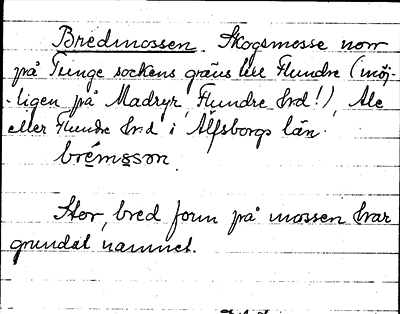 Bredmossen. Skogsmosse norr
på Tunge sockens gräns till Flundre (möj-
-ligen på Madryr, Flundre hrd!), Ale
eller Flundre hrd i Älfsborgs län.
brémsson.
Stor, bred form på mossen har
grundat namnet.